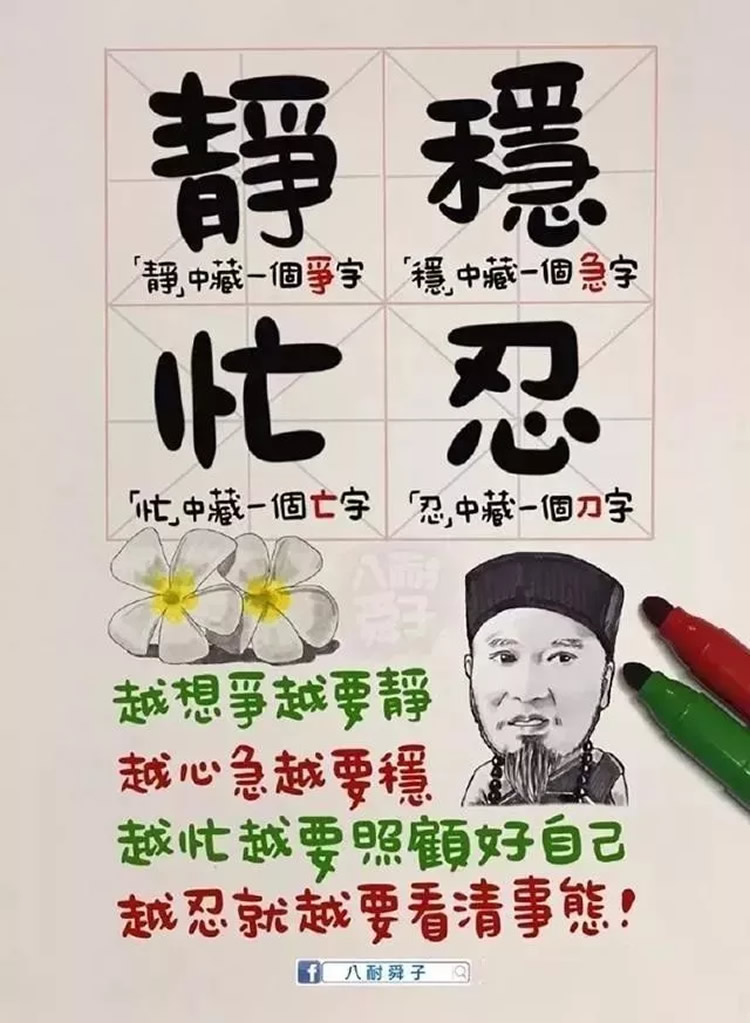 靜 穩
「靜」中藏一個爭字 「穩」中藏一個急字
忙 忍
「忙」中藏一個亡字 「忍」中藏一個刀字
八耐舜子
越想爭越要靜
越心急越要穩
越忙越要照顧好自己
越忍就越要看清事態!
f 八耐舜子